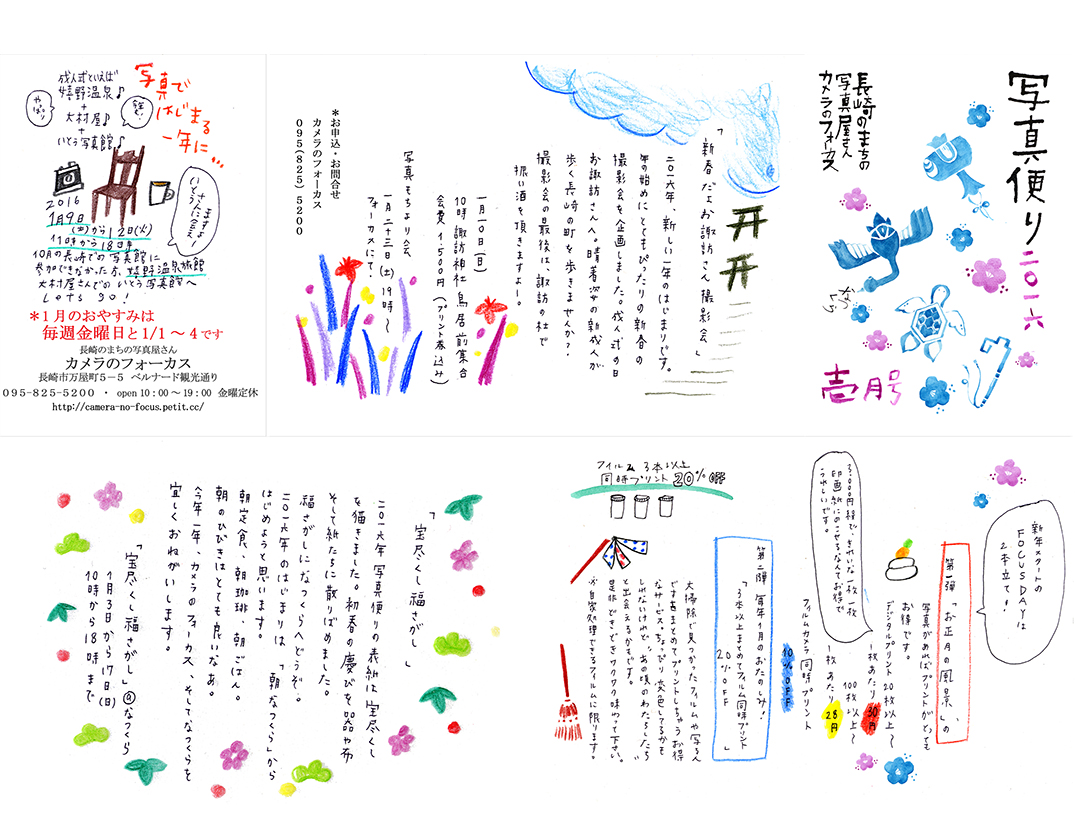 写真便り二〇一六
長崎のまちの
写真屋さん
カメラのフォーカス
壱月号
「新春だよお諏訪さん撮影会」
二〇一六年、新しい一年のはじまりです。
年の始めにとてもぴったりの新春の
撮影会を企画しました。成人式の日
お諏訪さんへ。晴着姿の新成人が
歩く長崎の町を歩きませんか？
撮影会の最後は、諏訪の杜で
振い酒を頂きますよー。
一月一〇日(日)
10時 諏訪神社鳥居前集合
会費 1,500円(プリント巻込み)
写真もちより会
一月二十三日(土) 19時〜
フォーカスにて．
＊お申込・お問合せ
カメラのフォーカス
095(825)5200
写真で
はじまる
一年に…
成人式といえば
嬉野温泉♪
+
大村屋♪
+
いとう写真館♪
やっぱり
2016
1月9日
(土)から12日(火)
11時から18時
10月の長崎での写真館に
参加できなかった方、嬉野温泉旅館
大村屋さんでのいとう写真館へ
Lets go!
いとうさんに会えますよー
＊1月のおやすみは
毎週金曜日と1/1〜4です
長崎のまちの写真屋さん
カメラのフォーカス
長崎市万屋町5−5 ベルナード観光通り
095-825-5200 ・ open 10:00〜19:00 金曜定休
http://camera-no-focus.petit.cc/
新年スタートの
FOCUSDAYは
2本立て！
第一弾 「お正月の風景」、の
写真があればプリントがとっても
お得です。
デジタルプリント20枚以上〜
1枚あたり 30円
100枚以上〜
1枚あたり 28円
フィルムカメラ同時プリント
10％OFF
3,000円程で、きれいな一枚一枚
印画紙にのこせるなんてお得で
うれしいです。
第二弾 毎年1月のおたのしみ！
「3本以上まとめてフィルム同時プリント」
20％OFF
大掃除で見つかったフィルムや写るん
ですをまとめてプリントしちゃうお得
なサービス。ちょっぴり変色してるかも
しれないけれど、あの頃のわたしたち
と出会えるかもです。
是非どきどきワクワク味わって下さい。
※自家処理できるフィルムに限ります。
フィルム3本以上
同時プリント 20％OFF
「宝尽くし福さがし」
二〇一六年 写真便りの表紙は宝尽くし
を描きました。初春の慶びを器や布
そして紙たちに散りばめました。
福さがしになつくらへどうぞ。
二〇一六年のはじまりは、「朝なつくら」から
はじめようと思います。
朝定食、朝珈琲、朝ごはん。
朝のひびきはとても良いなぁ。
今年一年、カメラのフォーカス、そしてなつくらを
宜しくおねがいします。
「宝尽くし福さがし」@なつくら
1月3日から17日(日)
10時から18時まで